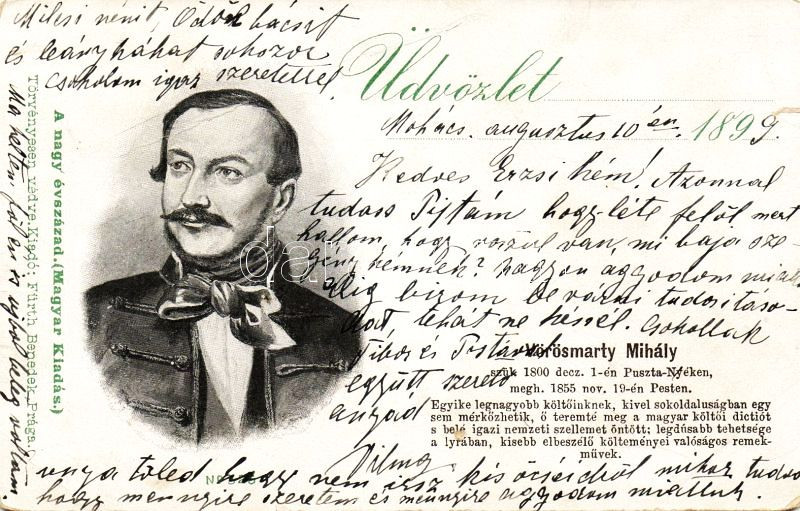 Milcsi nénit, Ödön bácsit
és leánykáhat sokszor
csókolom igaz szeretettel
Üdvözlet
Mohács. augusztus 10én 1899.
Kedves Erzsikém! Azonnal
tudass Pistám hogy-léte felől mert
hallom, hogy rosszul van, mi baja sze-
génykémnek? nagyon aggodom miatta
Alig birom bevárni tudositáso-
dat, tehát ne késsél. Csókollak
Tibor és Pistával
együtt szerető
anyád
Vilma
Vörösmarty Mihály
szül. 1800 decz. 1-én Puszta-Nyéken,
megh. 1855 nov. 19-én Pesten.
Egyike legnagyobb költőinknek, kivel sokoldaluságban egy
sem mérkőzhetik, ő teremté meg a magyar költői dictiót
s belé igazi nemzeti szellemet öntött; legdúsabb tehetsége
a lyrában, kisebb elbeszélő költeményei valóságos remek-
művek.
tőled, hogy nem irsz kis öcséidről mikor tudod
hogy mennyire szeretem és mennyire aggodom miattuk.
A nagy évszázad. (Magyar Kiadás.)
Törvényesen védve. Kiadó: Fürth Benedek, Prága.
Ma hetten és ujból beteg voltam.
darabanth